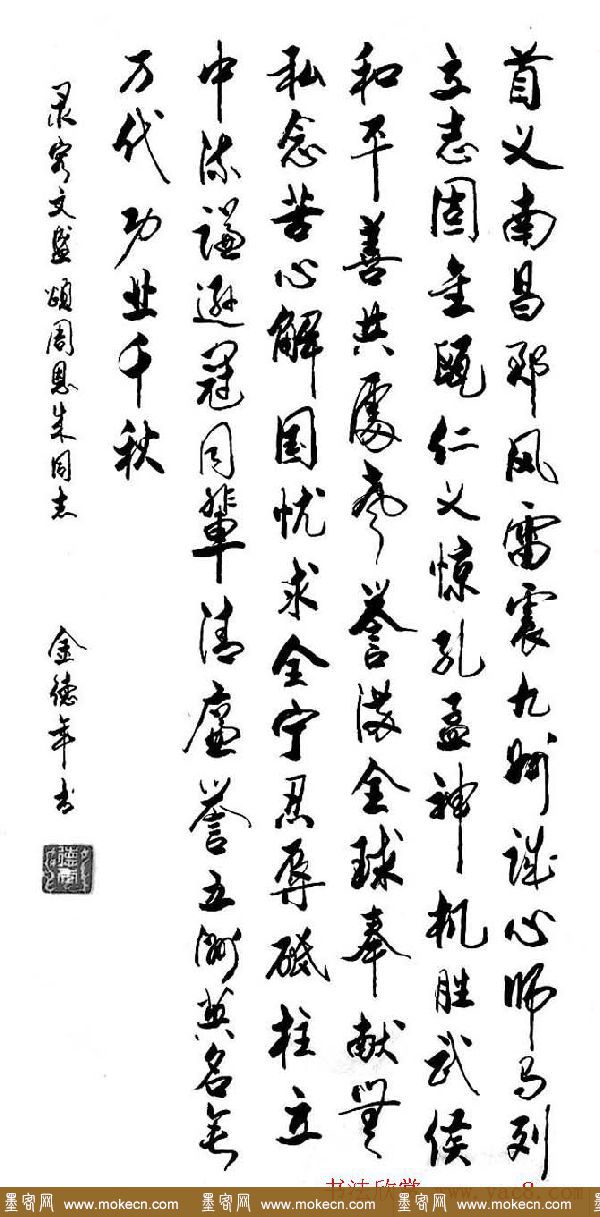 首义南昌郡风雷震九州诚心师马列
立志固金瓯仁义惊孔孟神机胜武侯
和平善共處誉满全球奉献無
私念苦心解国忧求全宁忍辱砥柱立
中流謙遜冠同輩清廉誉五洲英名垂
万代功业千秋
录文盛颂周恩来同志 金德年书
书法欣赏 www.yac8.com
墨客网 www.mokecn.com 墨客网 www.mokecn.com 墨客网 www.mokecn.com